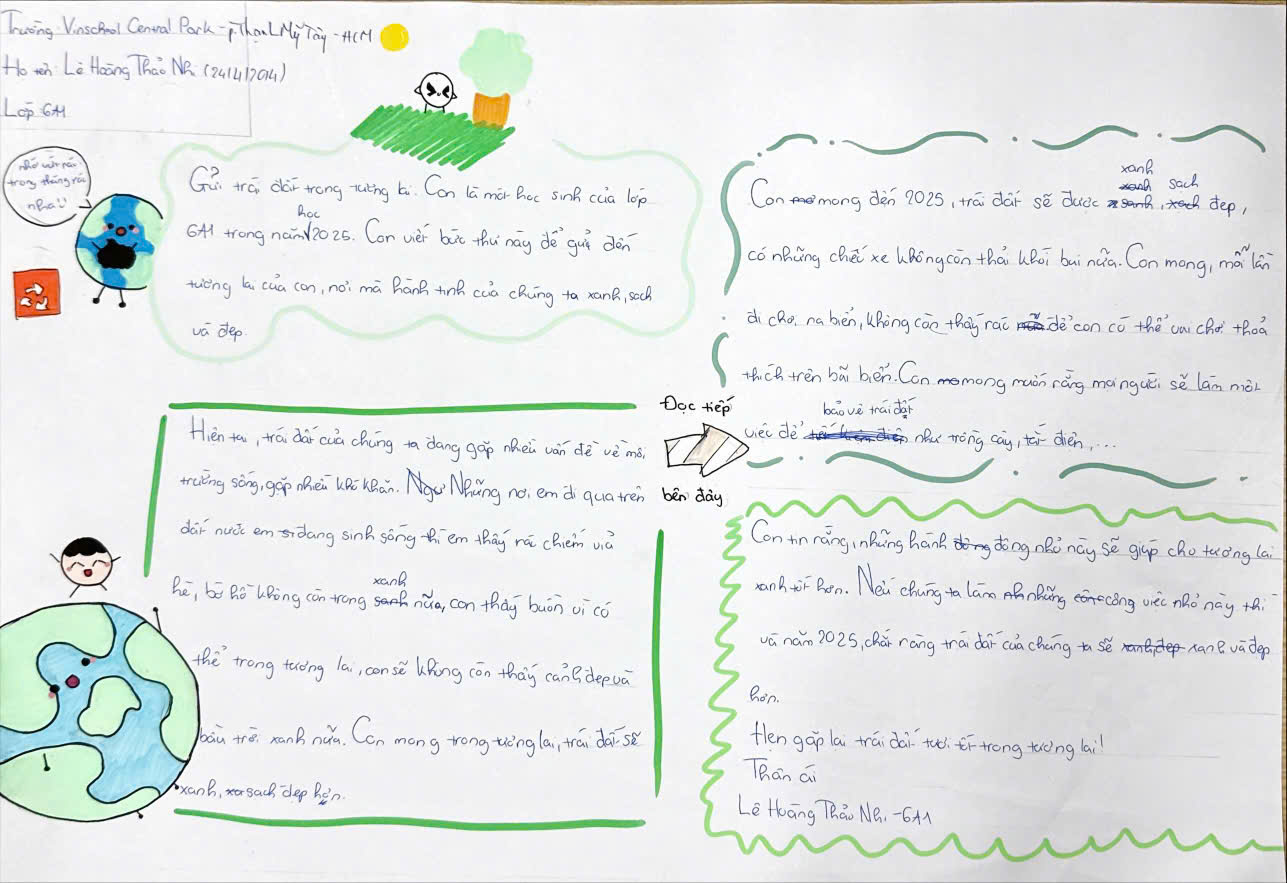 Trường: Vinschool Central Park - p. Thạnh Mỹ Tây - HCM
Họ tên: Lê Hoàng Thảo Nhi (24/4/2014)
Lớp: 6A1
nhớ vứt rác
trong thùng rác
nha!!
Gửi trái đất trong tương lai. Con là một học sinh của lớp
6A1 trong năm học 2025. Con viết bức thư này để gửi đến
tương lai của con, nơi mà hành tinh của chúng ta xanh, sạch
và đẹp.
Hiện tại, trái đất của chúng ta đang gặp nhiều vấn đề về môi
trường sống, gặp nhiều khó khăn. Những nơi em đi qua trên
đất nước em đang sinh sống thì em thấy rác chiếm vỉa
hè, bờ hồ không còn trong xanh nữa, con thấy buồn vì có
thể trong tương lai, con sẽ không còn thấy cảnh đẹp và
bầu trời xanh nữa. Con mong trong tương lai, trái đất sẽ
xanh, sạch đẹp hơn.
Đọc tiếp
bên đây
Con mong đến 2025, trái đất sẽ được xanh, sạch đẹp,
có những chiếc xe không còn thải khói bụi nữa. Con mong, mỗi lần
đi chơi ra biển, không còn thấy rác để con có thể vui chơi thoả
thích trên bãi biển. Con mong muốn rằng mọi người sẽ làm một
việc để bảo vệ trái đất như trồng cây, tắt điện,...
Con tin rằng, những hành động nhỏ này sẽ giúp cho tương lai
xanh tốt hơn. Nếu chúng ta làm những công việc nhỏ này thì
và năm 2025, chắc rằng trái đất của chúng ta sẽ xanh và đẹp
hơn.
Hẹn gặp lại trái đất tươi tốt trong tương lai!
Thân ái
Lê Hoàng Thảo Nhi - 6A1